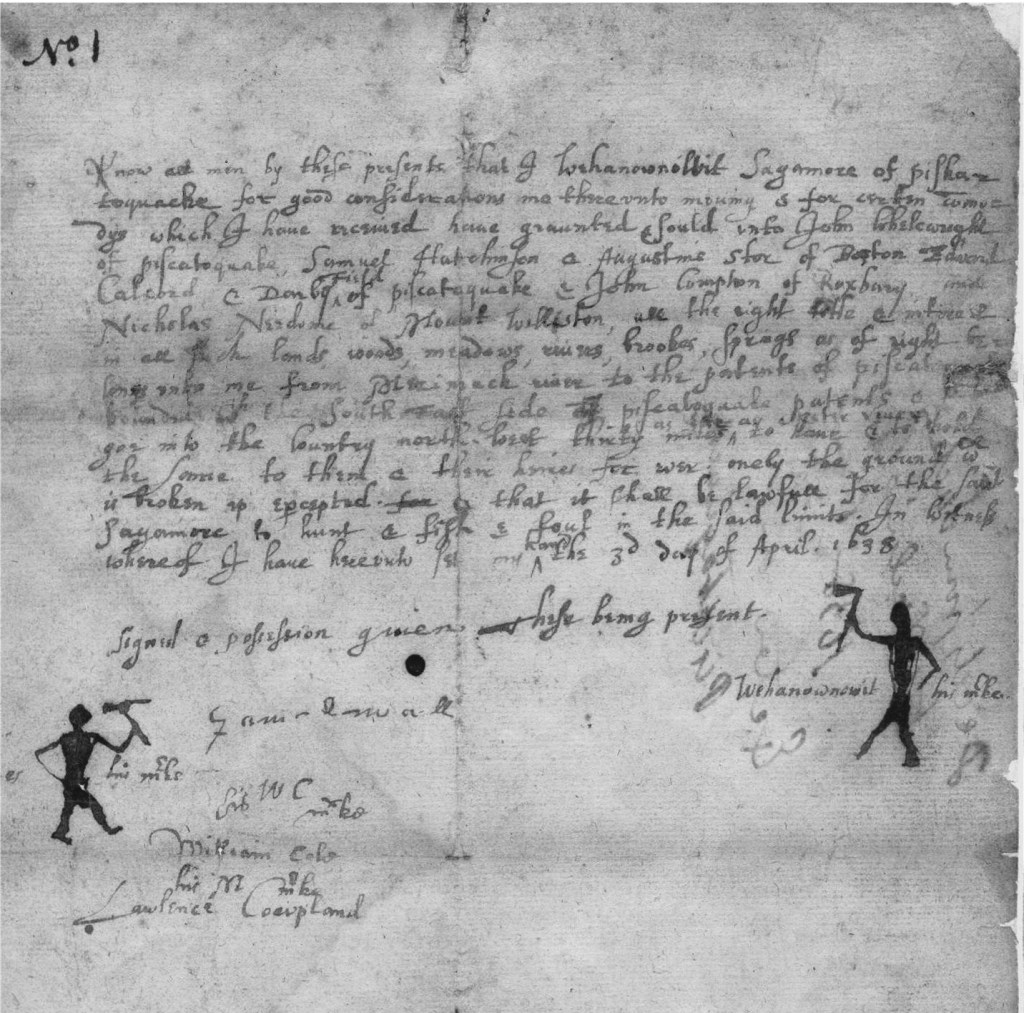 No. 1
Know all men by these presents that I Wehanownowit Sagamore of piskat
toquacke for good considerations me therevnto mouing & for certen como
dys which I have receiued have graunted & sould vnto John Whelewright
of piscatoquake, Samuel Hutchinson & Augustine Stor of Boston Edward
Calcord & Darby Field of piscatoquake & John Compton of Roxbury and
Nicholas Needome of Mount Walliston, all the right title & interest
in all such lands, woods, meadows, riuers, brookes, springs as of right be
long vnto me from Merimack riuer to the patents of piscatoquake
bounded the South East side of piscatoquake patents &
goe into the Country north West thirty miles as far as to haue & to hold
the same to them & their heires for euer. onely the ground wch
is broken vp excepted. for & that it shall be lawfull for the said
Sagamore to hunt & fish & foul in the said limits. In Witness
whereof I have herevnto set my hand the 3d day of April. 1638
signed & possession giuen these being present.
Wehanownowit his mke.
his mke
his W C mke
William Cole
his M mke
Lawlence Coeupland